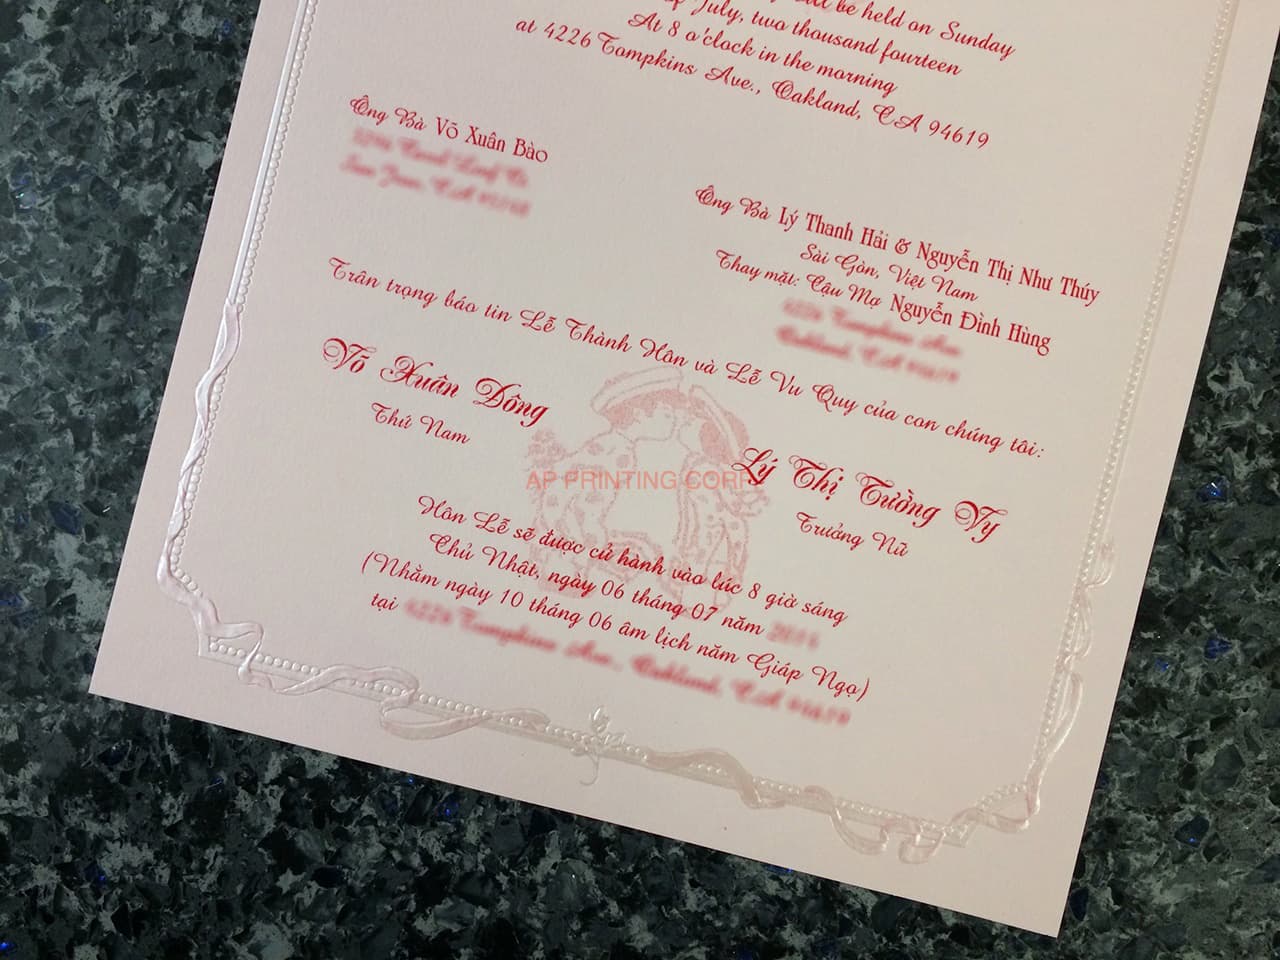 be held on Sunday
July, two thousand fourteen
At 8 o'clock in the morning
at 4226 Tompkins Ave., Oakland, CA 94619
Ông Bà Võ Xuân Bào
Ông Bà Lý Thanh Hải & Nguyễn Thị Như Thúy
Sài Gòn, Việt Nam
Thay mặt: Cậu Mợ Nguyễn Đình Hùng
Trân trọng báo tin Lễ Thành Hôn và Lễ Vu Quy của con chúng tôi:
Võ Xuân Đông
Thứ Nam
Lý Thị Tường Vy
Trưởng Nữ
AP PRINTING CORP
Hôn Lễ sẽ được cử hành vào lúc 8 giờ sáng
Chủ Nhật, ngày 06 tháng 07 năm
(Nhằm ngày 10 tháng 06 âm lịch năm Giáp Ngọ)
tại